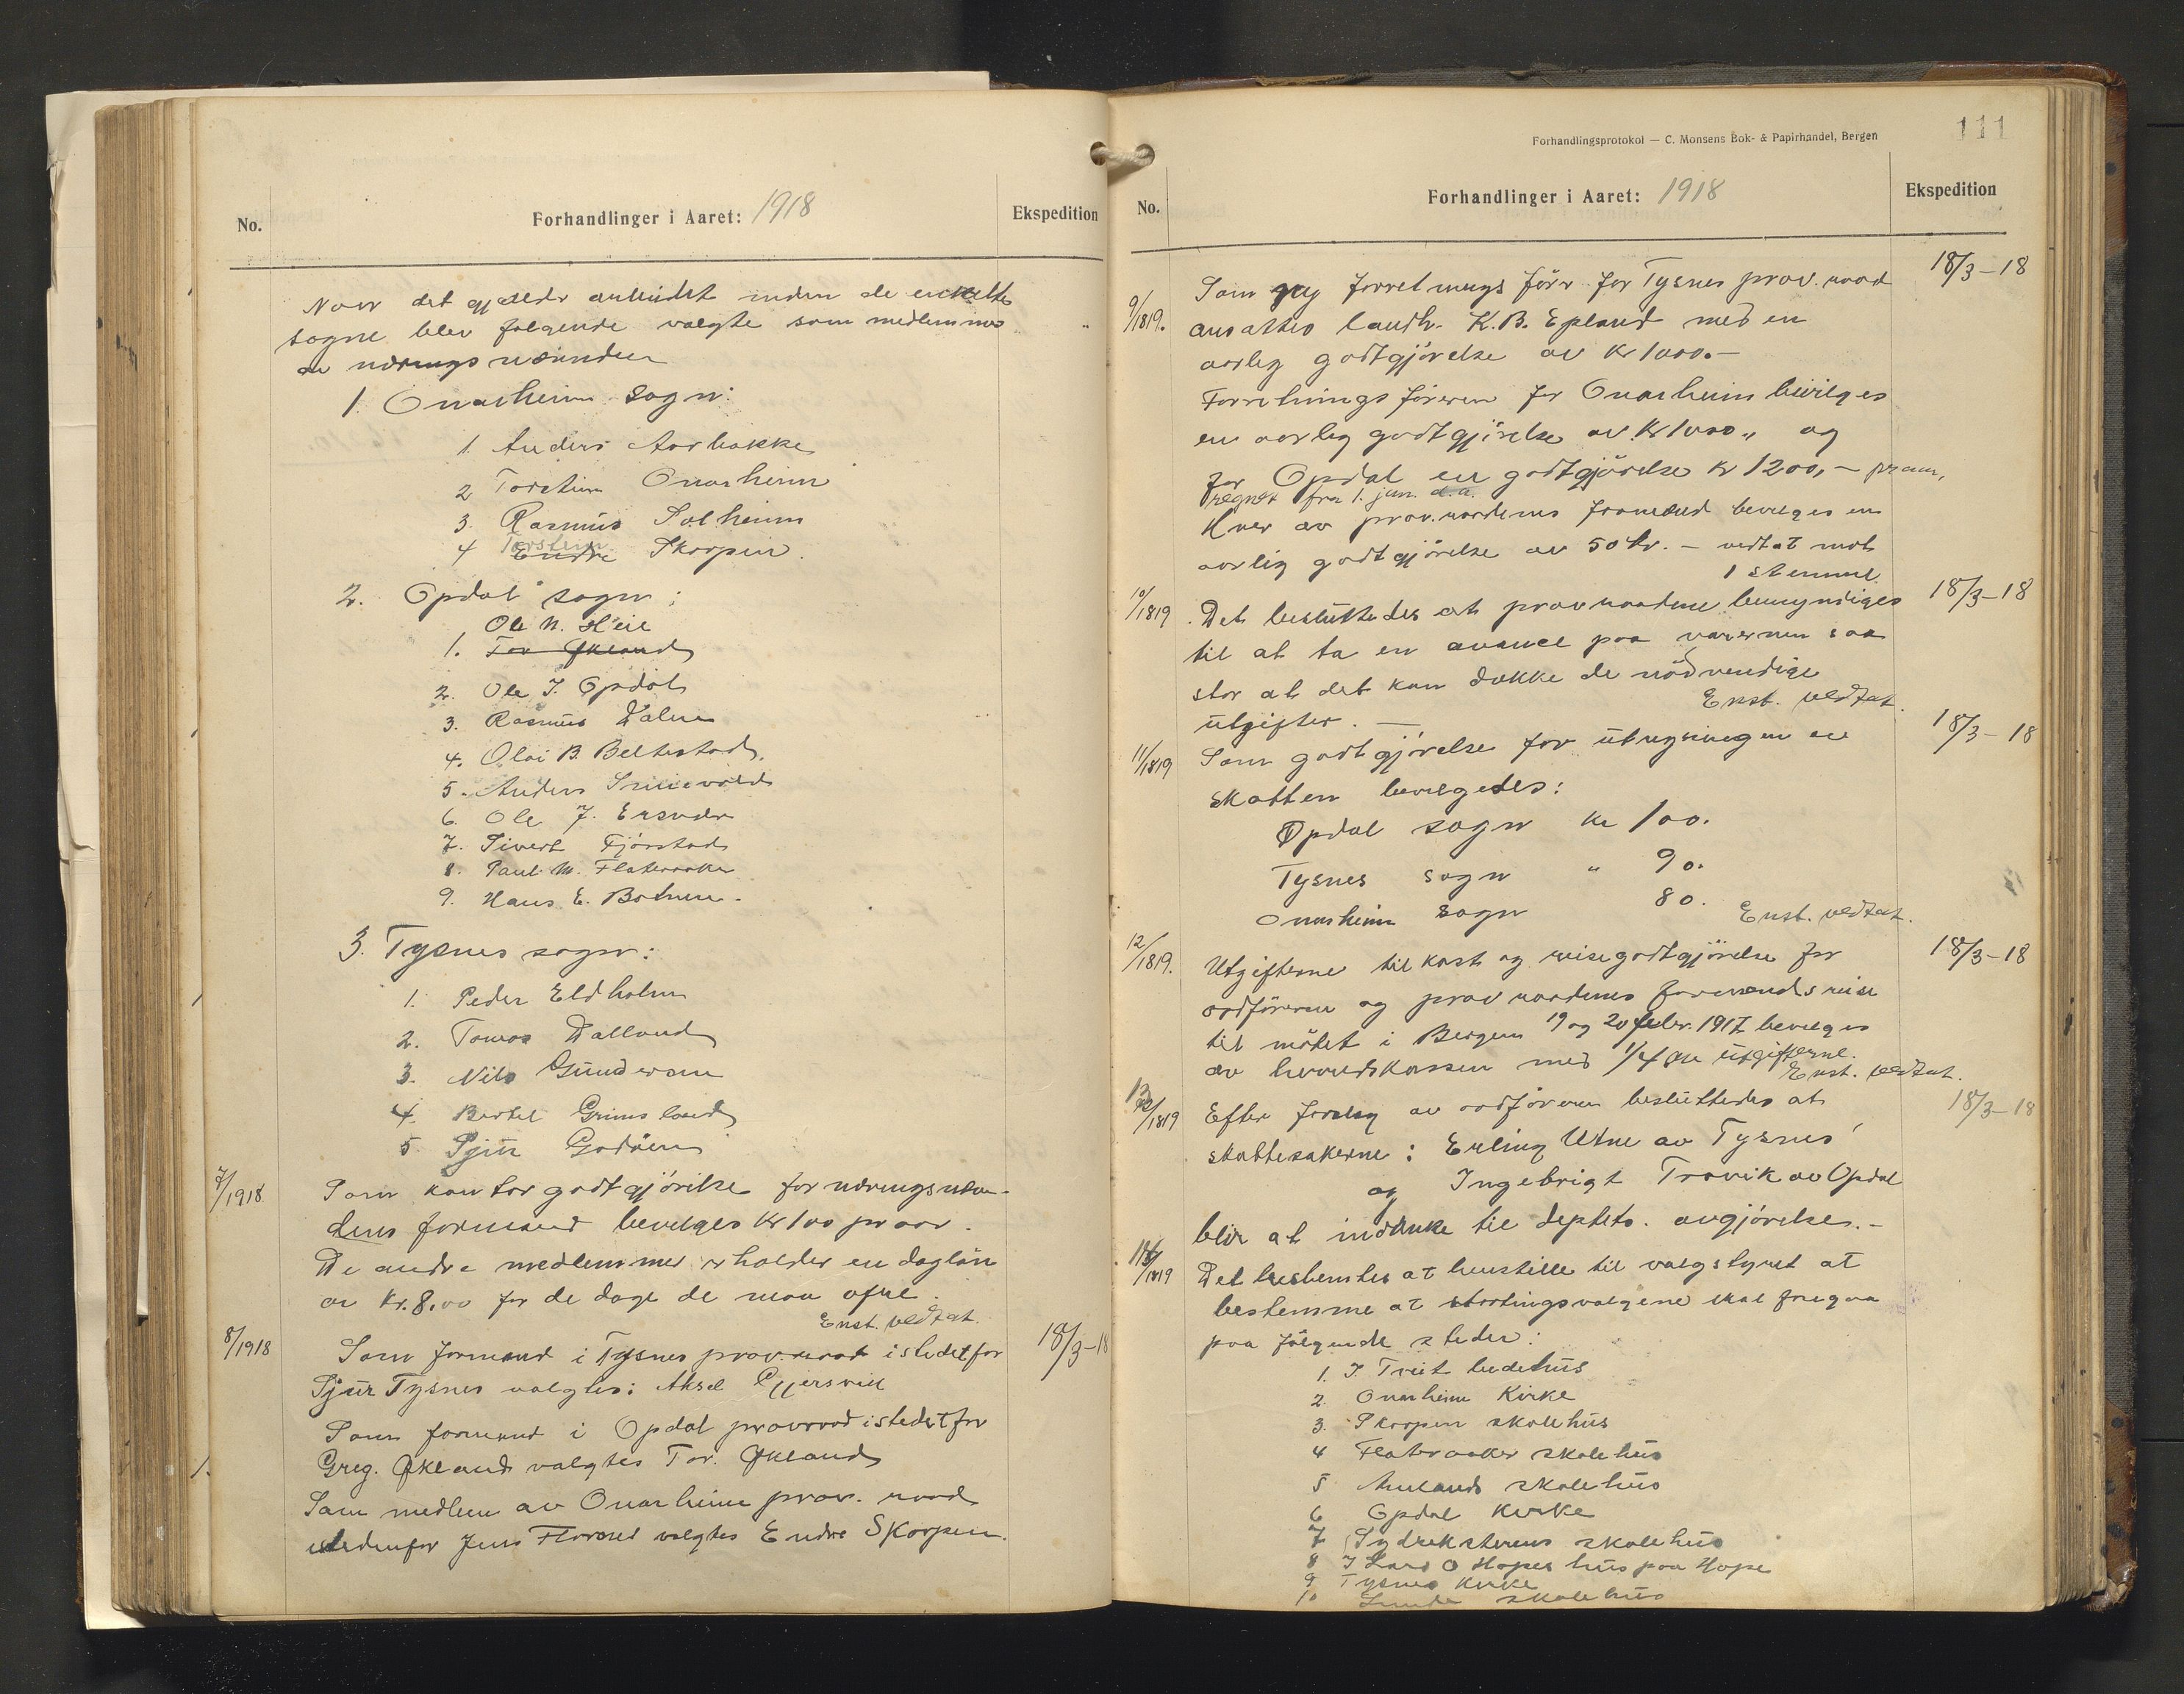 No.
Forhandlinger i Aaret: 1918
Ekspedition
Naar det gjælder arbeidet inden de enkelte
sogne blev følgende valgte som medlemmer
av nærings nævnden
1. Onarheim sogn:
1. Anders Aarbakke
2 Torstein Onarheim
3. Rasmus Solheim
Torstein
4 Endre Skorpen.
2. Opdal sogn:
Ole N. Heie
1. Tor Økland
2. Ole J. Opdal
3. Rasmus Dalen
4. Olai B. Beltestad.
5. Anders
6. Ole J. Ersvær
7. Sivert Fjørstad
8. Paul M. Flateraaker
9. Hans E. Botnen.
3. Tysnes sogn:
1. Peder Eldholm
2. Tomas Dalland
3. Nils Gunderson
4. Bertel Grimsland
5. Sjur Godøen
7/1918
Som kontorgodtgjørelse for næringsnævn-
dens formand bevilges Kr 100 pr aar.
De andre medlemmer erholder en dagløn
av Kr. 8,00 for de dage de maa ofre.
Enst. vedtat.
8/1918
Som formand i Tysnes prov.raad istedetfor
18/3-18
Sjur Tysnes valgtes: Aksel Gjersvik
Som formand i Opdal provraad istedetfor
Greg. Økland valgtes Tor. Økland
Som medlem av Onarheim prov. raad
istedenfor Jens Florvaag valgtes Endre Skorpen.
Forhandlingsprotokol — C. Monsens Bok- & Papirhandel, Bergen
111
No.
Forhandlinger i Aaret: 1918
Ekspedition
9/1819.
Som ny forretnings fører for Tysnes prov. raad
18/3-18
ansattes landh. K. B. Epland med en
aarlig godtgjørelse av Kr 1000.-
Forretningsføreren for Onarheim bevilges
en aarlig godtgjørelse av Kr 1000,, og
for Opdal en godtgjørelse Kr 1200,- pr aar,
regnet fra 1. jan. d.a.
Hver av prov.raadenes formænd bevilges en
aarlig godtgjørelse av 50 kr. - vedtat mot
1 stemme.
10/1819
Det besluttedes at provraadene bemyndiges
18/3-18
til at ta en avance paa varerne saa
stor at det kan dække de nødvendige
utgifter. —
Enst. vedtat.
11/1819
Som godtgjørelse for utregningen av
18/3-18
skatten bevilgedes:
Opdal sogn Kr 100.
Tysnes sogn " 90.
Onarheim sogn 80.
Enst. vedtat.
12/1819.
Utgifterne til kost og reisegodtgjørelse for
18/3-18
ordføreren og prov raadenes formænds reise
til møtet i Bergen 19 og 20 febr. 1917 bevilges
av herredskassen med 1/4 av utgifterne.
Enst. vedtat.
13/1819
Efter forslag av ordføreren besluttedes at
18/3-18
skattesakerne: Erling Utne av Tysnes
og Ingebrigt Travik av Opdal
blir at indanke til deptets. avgjørelse.-
14/1819
Det bestemtes at henstille til valgstyret at
bestemme at stortingsvalgene skal foregaa
paa følgende steder:
1. I Tveit bedehus
2. Onarheim Kirke
3. Skorpen skolehus
4 Flateraaker skolehus
5 Amlands skolehus
6 Opdal Kirke
7 Sydrekstrens skolehus
8 I Lars O Hopes hus paa Hope
9 Tysnes Kirke
10 Lunde skolehus